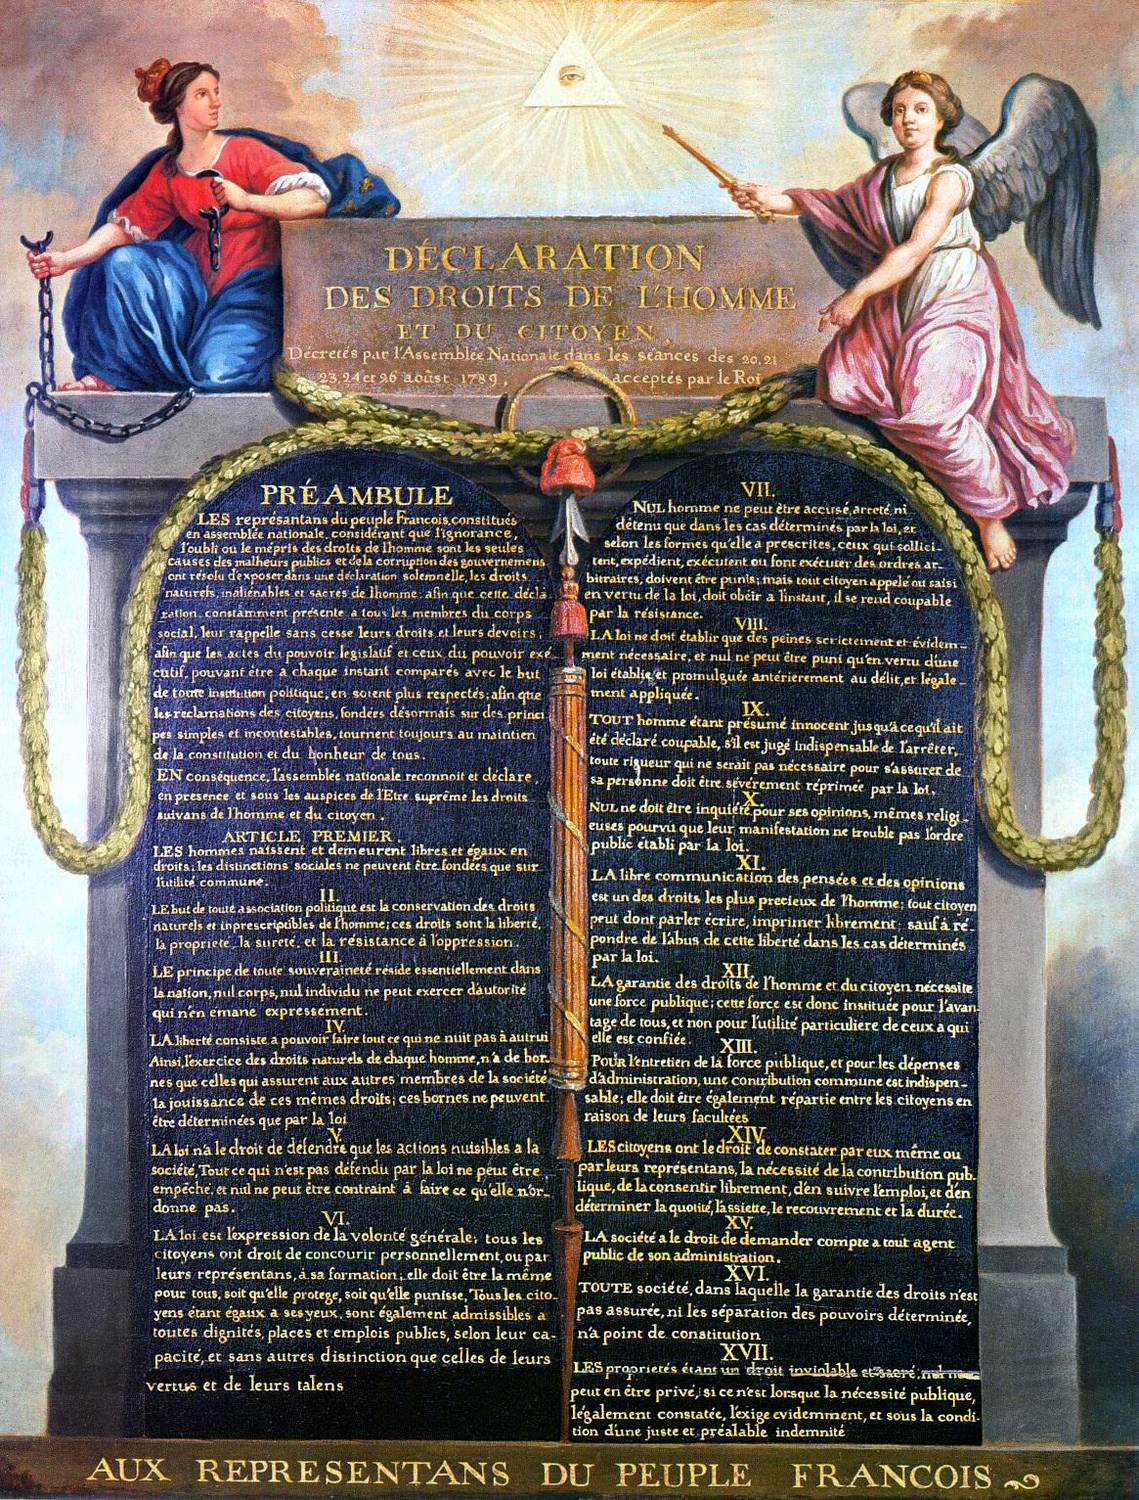 DÉCLARATION
DES DROITS DE L'HOMME
ET DU CITOYEN,
Décretés par l'Assemblée Nationale dans les séances des 20, 21
23, 24 et 26 aoûst 1789, acceptés par le Roi
PRÉAMBULE
LES représantans du peuple Francois, constitués
en assemblée nationale, considérant que l'ignorance,
l'oubli ou le mépris des droits de l'homme sont les seules
causes des malheurs publics et de la corruption des gouvernemens
ont résolu d'exposer dans une déclaration solemnelle, les droits
naturels, inaliénables et sacrés de l'homme: afin que cette décla
ration, constamment présente a tous les membres du corps
social, leur rappelle sans cesse leurs droits et leurs devoirs;
afin que les actes du pouvoir législatif et ceux du pouvoir exé-
cutif, pouvant être à chaque instant comparés avec le but
de toute institution politique, en soient plus respectés; afin que
les reclamations des citoyens, fondées désormais sur des princi
pes simples et incontestables, tournent toujours au maintien
de la constitution et du bonheur de tous.
EN conséquence, l'assemblée nationale reconnoit et déclare,
en presence et sous les auspices de l'Etre suprême les droits
suivans de l'homme et du citoyen.
ARTICLE PREMIER.
LES hommes naissent et demeurent libres et égaux en
droits, les distinctions sociales ne peuvent être fondées que sur
l'utilité commune.
II.
LE but de toute association politique est la conservation des droits
naturels et inprescriptibles de l'homme; ces droits sont la liberté,
la proprieté, la sureté, et la résistance à l'oppression.
III.
LE principe de toute souveraineté réside essentiellement dans
la nation, nul corps, nul individu ne peut exercer d'autorité
qui n'en émane expressement.
IV.
LA liberté consiste a pouvoir faire tout ce qui ne nuit pas à autrui
Ainsi, l'exercice des droits naturels de chaque homme, n'a de bor-
nes que celles qui assurent aux autres membres de la société
la jouissance de ces mêmes droits; ces bornes ne peuvent
être déterminées que par la loi
V.
LA loi n'a le droit de défendre que les actions nuisibles a la
société, Tout ce qui n'est pas défendu par la loi ne peut être
empêché, et nul ne peut être contraint à faire ce qu'elle n'or-
donne pas.
VI.
LA loi est l'expression de la volonté générale; tous les
citoyens ont droit de concourir personnellement, ou par
leurs représentans, à sa formation; elle doit être la même
pour tous, soit qu'elle protege, soit qu'elle punisse, Tous les cito-
yens étant égaux a ses yeux, sont également admissibles a
toutes dignités, places et emplois publics, selon leur ca-
pacité, et sans autres distinction que celles de leurs
vertus et de leurs talens
VII.
NUL homme ne peut être accusé, arreté, ni
détenu que dans les cas déterminés par la loi, et
selon les formes qu'elle a prescrites, ceux qui sollici-
tent, expédient, exécutent ou font exécuter des ordres ar-
bitraires, doivent être punis; mais tout citoyen appelé ou saisi
en vertu de la loi, doit obéir a l'instant, il se rend coupable
par la résistance.
VIII.
LA loi ne doit établir que des peines strictement et évidem-
ment nécessaire, et nul ne peut être puni qu'en vertu d'une
loi établie, et promulguée antérierement au délit, et légale-
ment appliquée.
IX.
TOUT homme étant présumé innocent jusqu'à ce qu'il ait
été déclaré coupable, s'il est jugé indispensable de l'arrêter,
toute rigueur qui ne serait pas nécessaire pour s'assurer de
sa personne doit être sévérement réprimée par la loi.
X.
NUL ne doit être inquiété pour ses opinions, mêmes religi-
euses pourvu que leur manifestation ne trouble pas l'ordre
public établi par la loi.
XI.
LA libre communication des pensées et des opinions
est un des droits les plus precieux de l'homme; tout citoyen
peut dont parler écrire, imprimer librement; sauf à ré-
pondre de l'abus de cette liberté dans les cas déterminés
par la loi.
XII.
LA garantie des droits de l'homme et du citoyen nécessite
une force publique; cette force est donc instituée pour l'avan-
tage de tous, et non pour l'utilité particuliere de ceux a qui
elle est confiée.
XIII.
POUR l'entretien de la force publique, et pour les dépenses
d'administration, une contribution commune est indispen-
sable; elle doit être également répartie entre les citoyens en
raison de leurs facultées
XIV.
LES citoyens ont le droit de constater par eux même ou
par leurs représentans, la nécessité de la contribution pub-
lique, de la consentir librement, d'en suivre l'emploi, et d'en
déterminer la quotité, l'assiette, le recouvrement et la durée.
XV.
LA société a le droit de demander compte a tout agent
public de son administration.
XVI.
TOUTE société, dans laquelle la garantie des droits n'est
pas assurée, ni les séparation des pouvoirs déterminée,
n'a point de constitution
XVII.
LES proprietés étant un droit inviolable et sacré, nul ne
peut en être privé, si ce n'est lorsque la nécessité publique,
légalement constatée, l'exige evidemment, et sous la condi-
tion d'une juste et préalable indemnité
AUX REPRESENTANS DU PEUPLE FRANCOIS